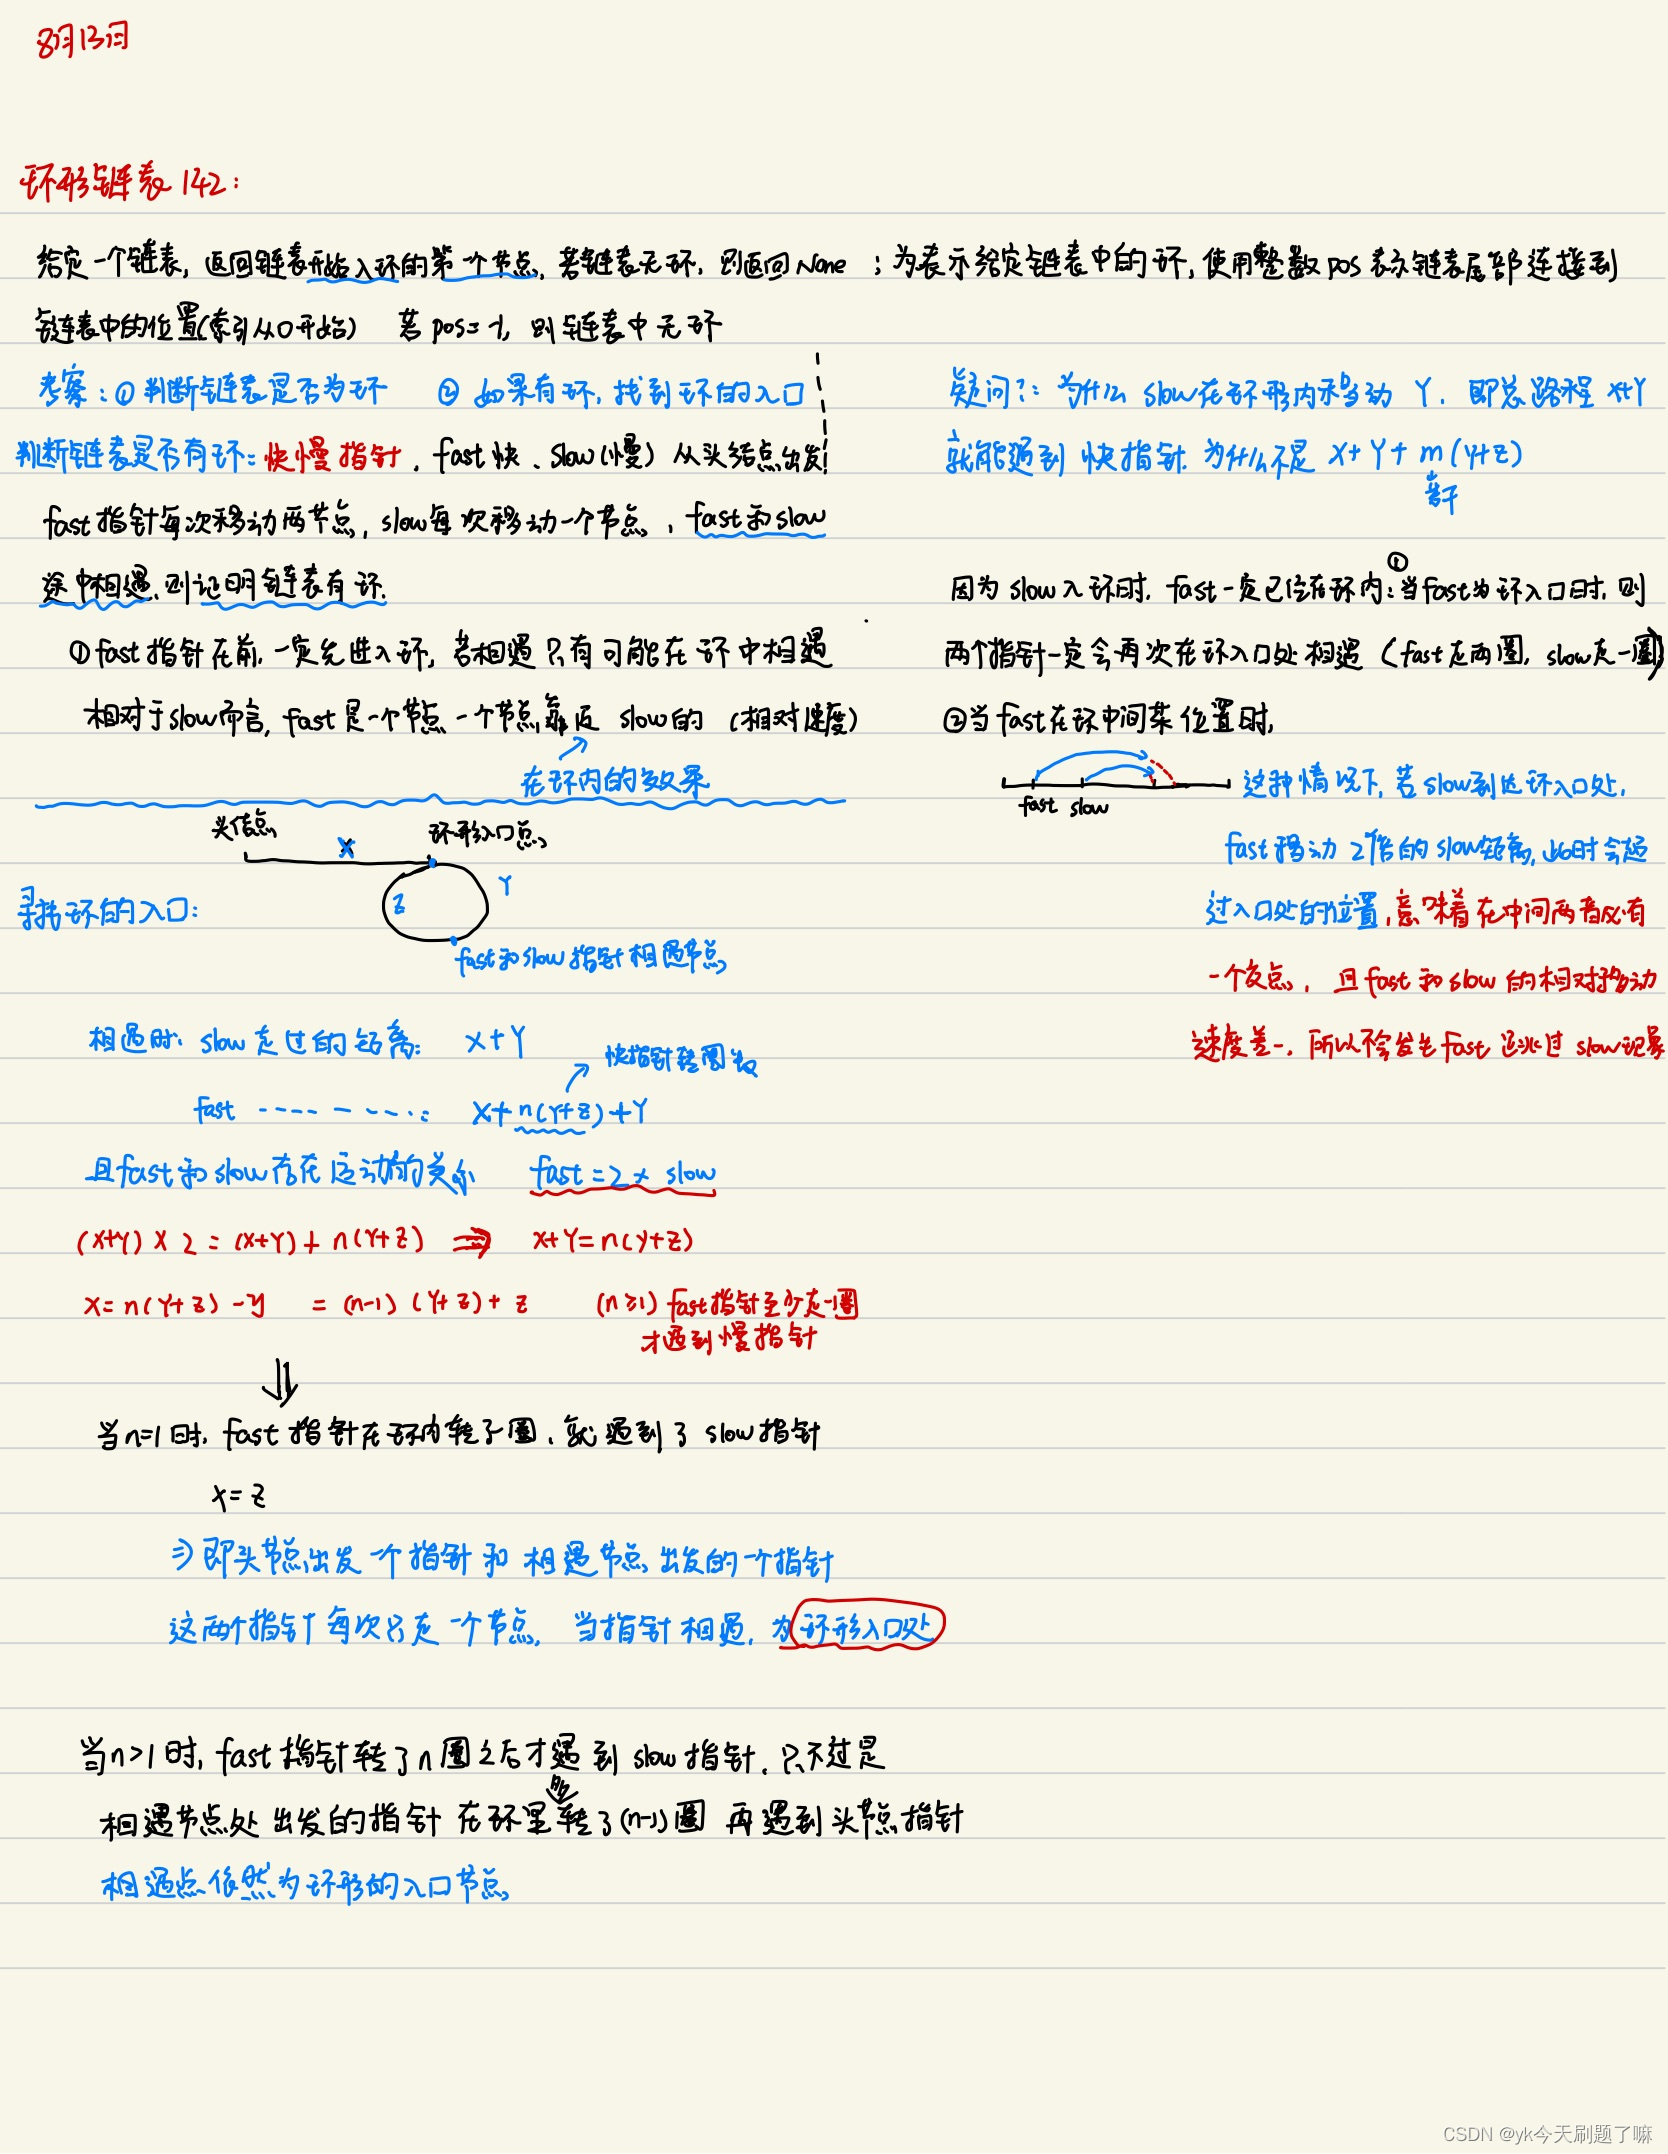 8月13日
环形链表 142:
给定一个链表, 返回链表开始入环的第一个节点, 若链表无环, 则返回 None ; 为表示给定链表中的环, 使用整数 pos 表示链表尾部连接到
链表中的位置(索引从0开始) 若 pos=-1, 则链表中无环
考察: ① 判断链表是否为环 ② 如果有环, 找到环的入口
判断链表是否有环: 快慢指针. fast 快、slow(慢) 从头结点出发!
fast 指针每次移动两节点, slow 每次移动一个节点, fast 和 slow
途中相遇, 则证明链表有环.
① fast 指针在前, 一定先进入环, 若相遇只有可能在环中相遇
相对于 slow 而言, fast 是一个节点一个节点靠近 slow 的 (相对速度)
在环内的效果
头结点
X
环形入口点
Y
Z
寻找环的入口:
fast 和 slow 指针相遇节点
相遇时: slow 走过的距离: X+Y
快指针转圈数
fast ----------: X+n(Y+Z)+Y
且 fast 和 slow 存在运动的关系 fast=2×slow
(X+Y) × 2 = (X+Y)+n(Y+Z) ⇒ X+Y=n(Y+Z)
X=n(Y+Z)-y = (n-1)(Y+Z)+z (n≥1) fast 指针至少走一圈
才遇到慢指针
⇓
当n=1时, fast 指针在环内转了圈, 就遇到了 slow 指针
x=z
⇒ 即头节点出发一个指针和相遇节点出发的一个指针
这两个指针每次只走一个节点, 当指针相遇, 为环形入口处
当n>1时, fast 指针转了n圈之后才遇到 slow 指针. 只不过是
相遇节点处出发的指针在环里转了(n-1)圈 再遇到头节点指针
相遇点依然为环形的入口节点
疑问?: 为什么 slow 在环形内移动 Y, 即总路程 X+Y
就能遇到快指针. 为什么不是 X+Y+m(Y+Z)
若干
因为 slow 入环时, fast 一定已位在环内: ① 当 fast 为环入口时, 则
两个指针一定会再次在环入口处相遇 (fast 走两圈, slow 走一圈)
② 当 fast 在环中间某位置时,
fast slow
这种情况下, 若 slow 到达环入口处,
fast 移动 2倍的 slow 距离, 此时会超
过入口处的位置, 意味着在中间两者必有
一个交点, 且 fast 和 slow 的相对移动
速度差一, 所以不会发生 fast 跳过 slow 现象
CSDN @yk今天刷题了嘛